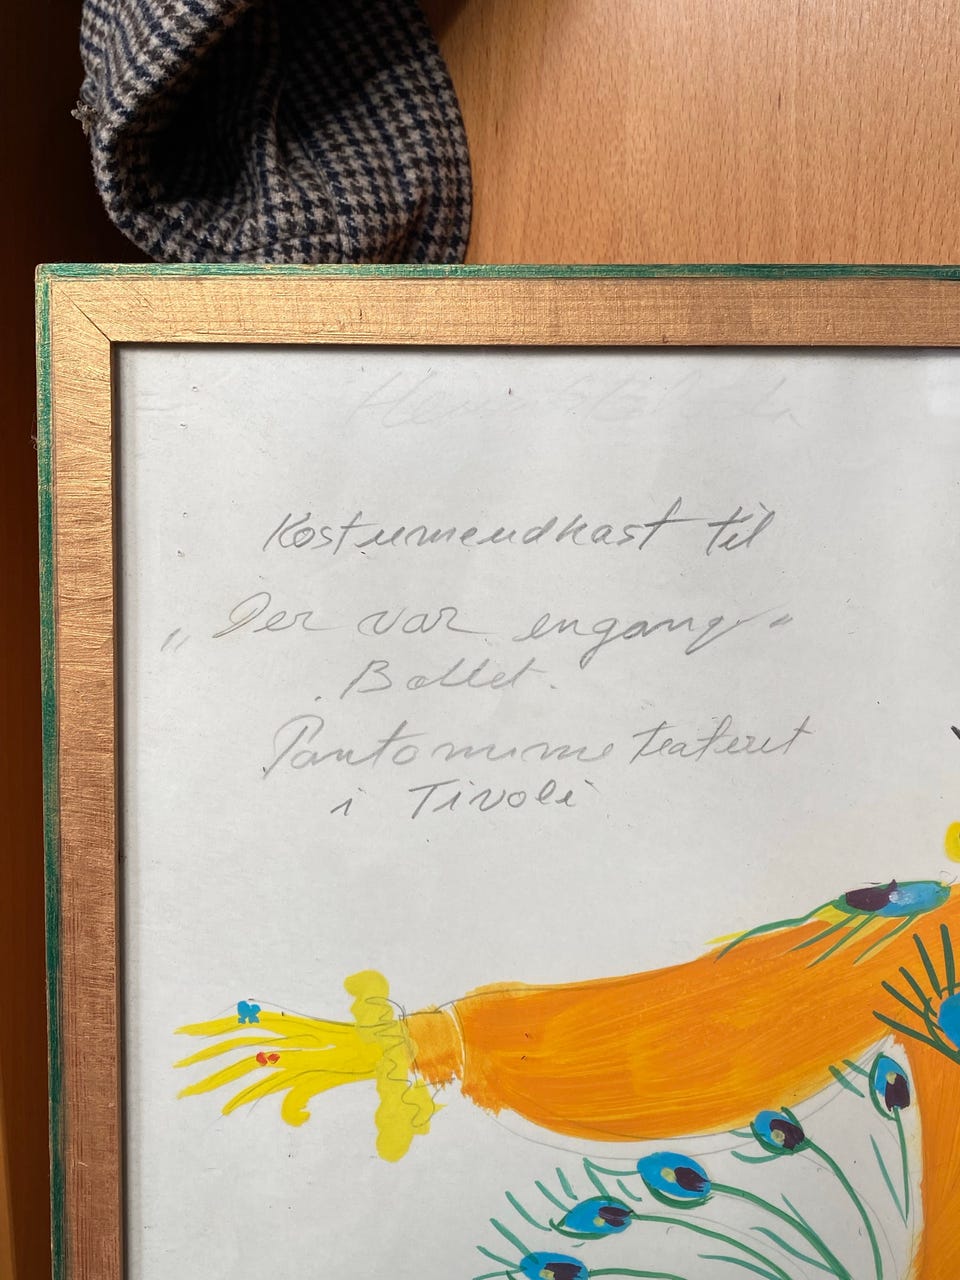 Kostumeudkast til
„Der var engang"
Ballet.
Pantomimeteatret
i Tivoli